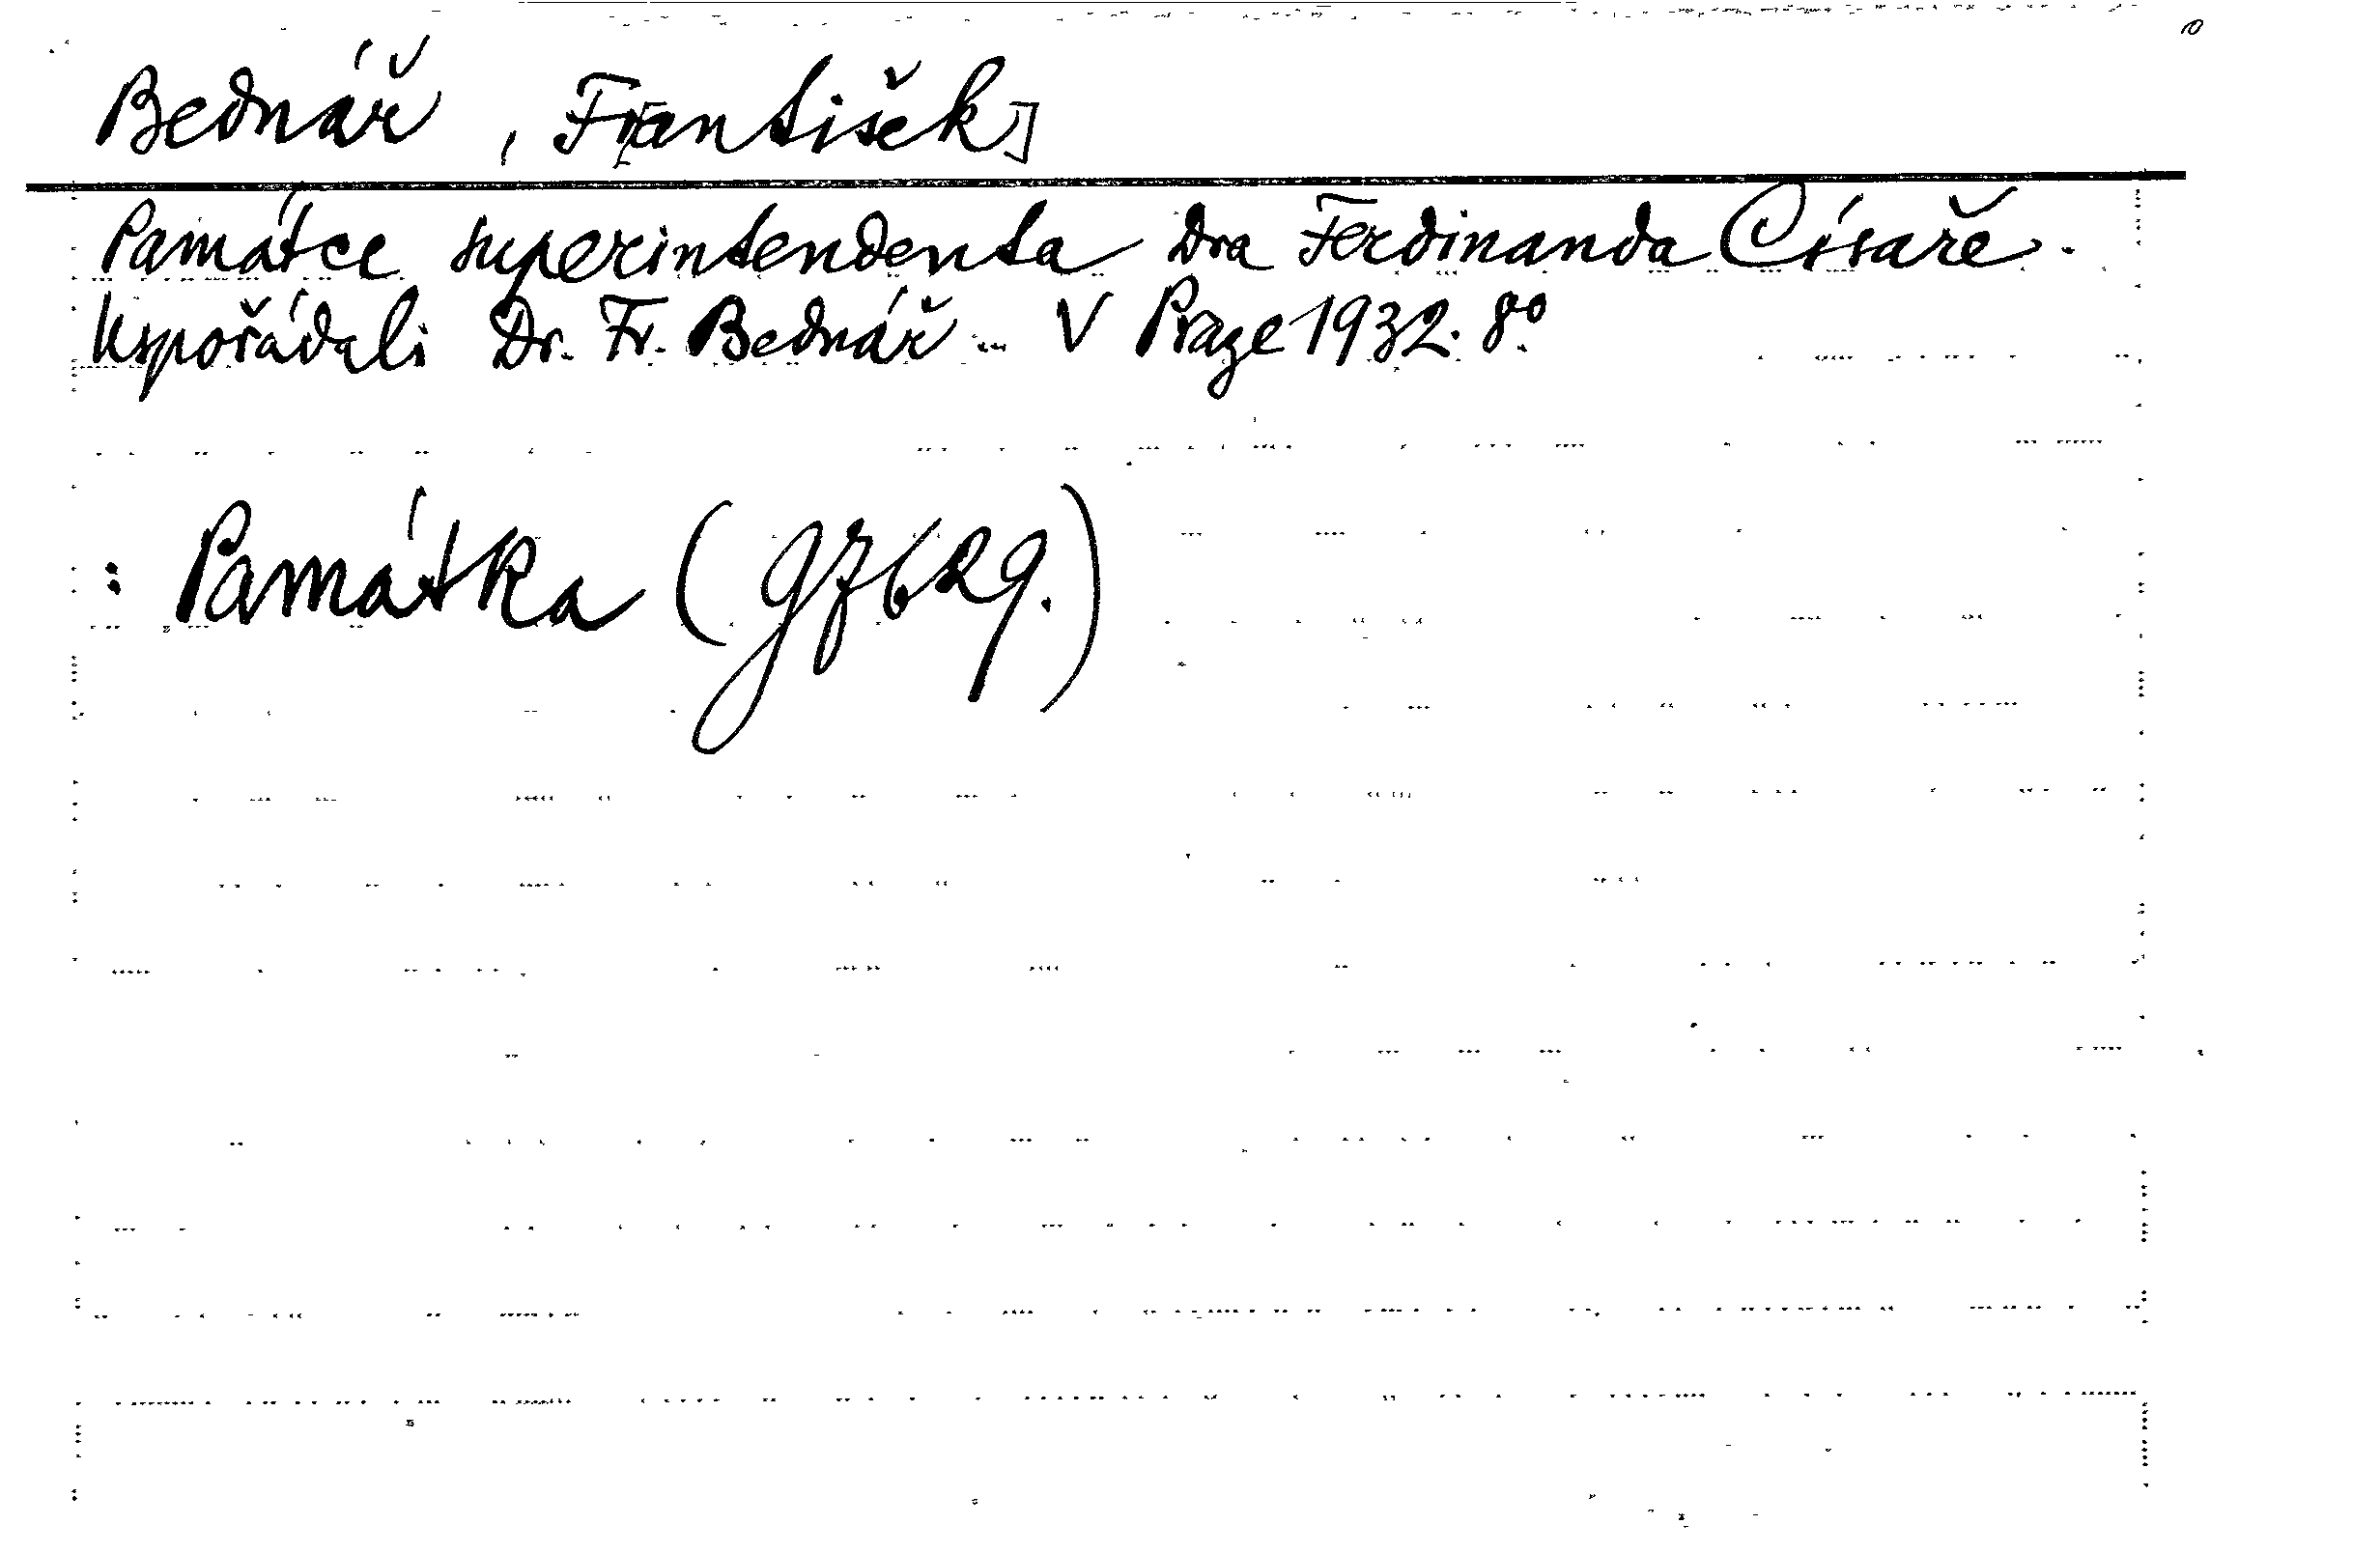 Bednář, Fr[antišek]
Památce superintendenta Dra Ferdinanda Císaře.
Uspořádali Dr. Fr. Bednář ... V Praze 1932. 8°.
: Památka (